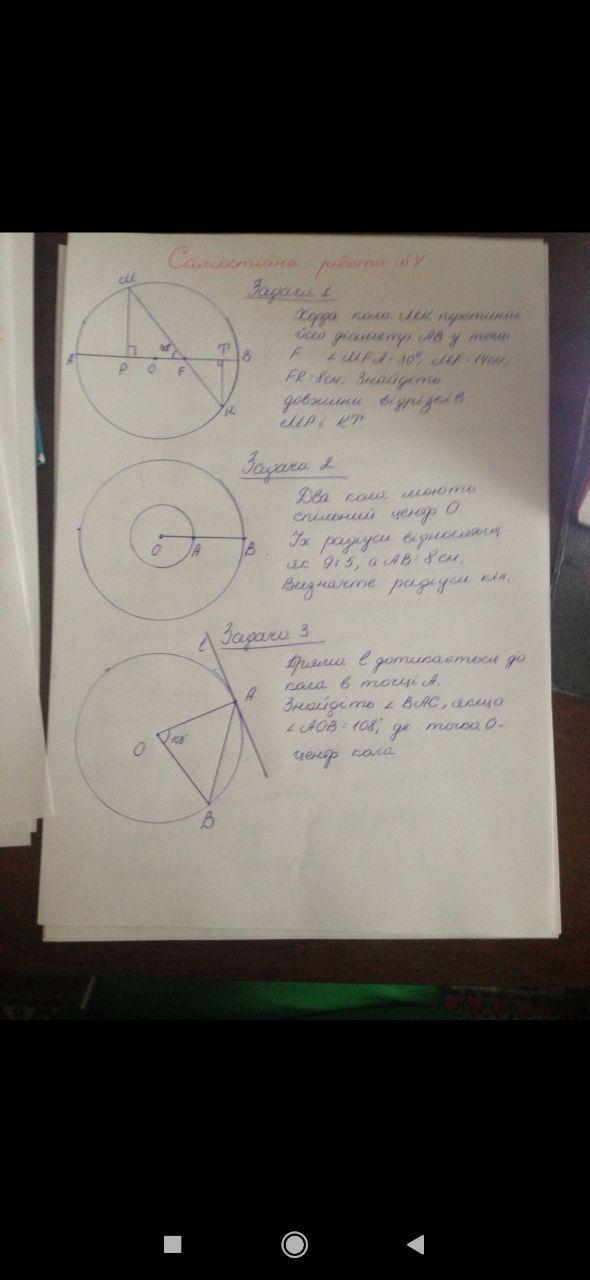 Самостійна робота №4
Задача 1
Хорда кола МК перетинає
його діаметр АВ у точці
F. ∠MFA=30°, MF=14см,
FK=8см. Знайдіть
довжини відрізків
МР і КТ
M
A
P
O
30°
F
T
B
K
Задача 2
Два кола мають
спільний центр О.
Їх радіуси відносяться
як 9:5, а АВ=8см.
Визначте радіуси кіл.
O
A
B
Задача 3
Пряма l дотикається до
кола в точці А.
Знайдіть ∠ВАС, якщо
∠АОВ=108°, де точка О-
центр кола
A
O
108°
B